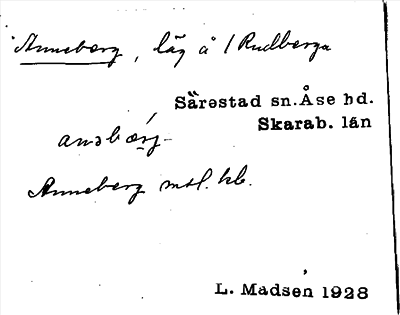 Anneberg, läg å 1 Rudberga
Särestad sn. Åse hd.
Skarab. län
anəbærj-
Anneberg mtl. kb.
L. Madsén 1928